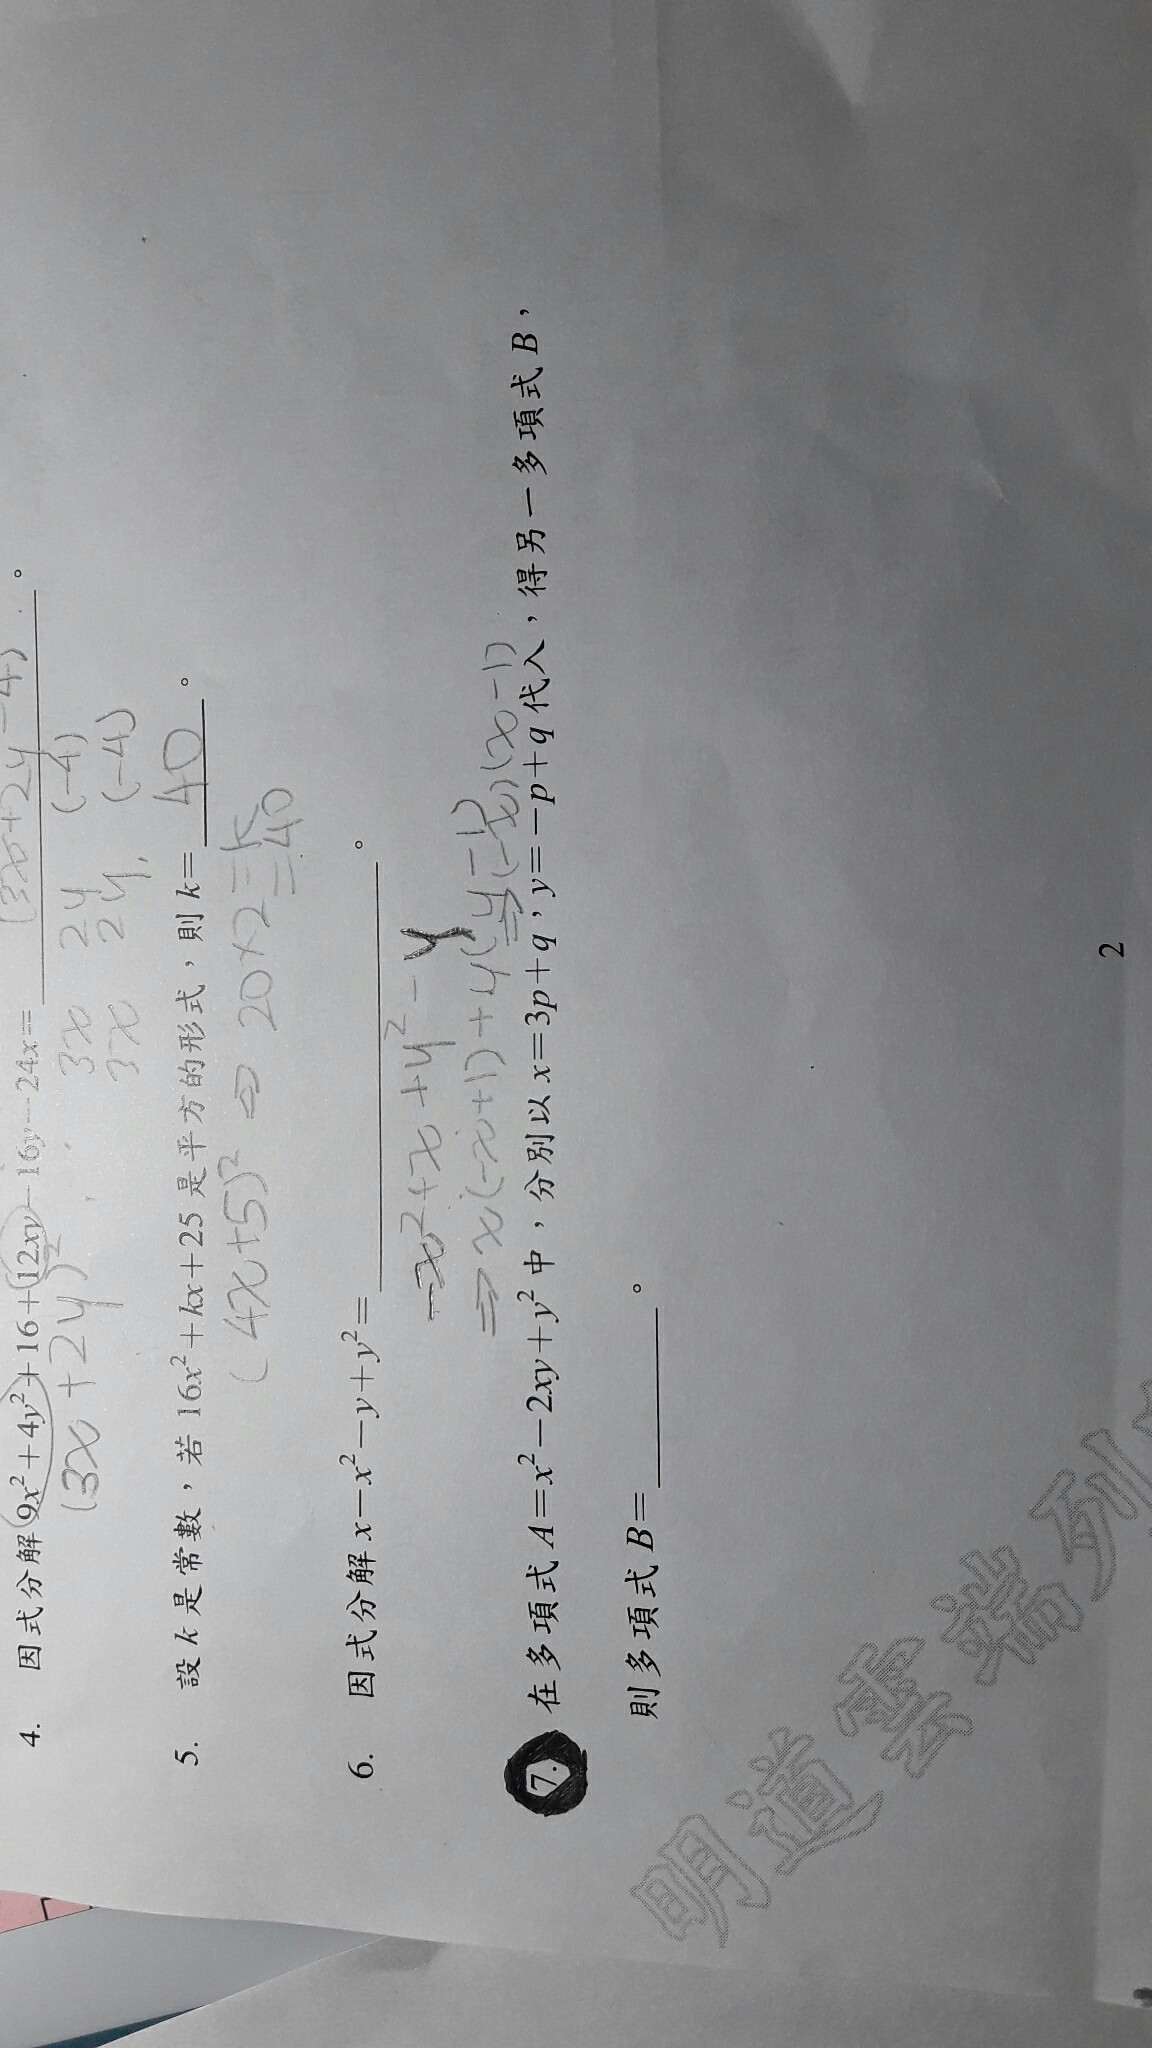 4. 因式分解 9x²+4y²+16+12xy-16y-24x= (3x+2y-4)。
(3x+2y)²
3x 2y (-4)
3x 2y, (-4)
5. 設 k 是常數，若 16x²+kx+25 是平方的形式，則 k= 40。
(4x+5)² ⇒ 20×2=k
=40
6. 因式分解 x-x²-y+y²=。
-x²+x+y²-y
⇒ x(-x+1)+y(y-1)
⇒ (-x)(x-1)
7. 在多項式 A=x²-2xy+y² 中，分別以 x=3p+q，y=-p+q 代入，得另一多項式 B，
則多項式 B=。
明道雲端列
2